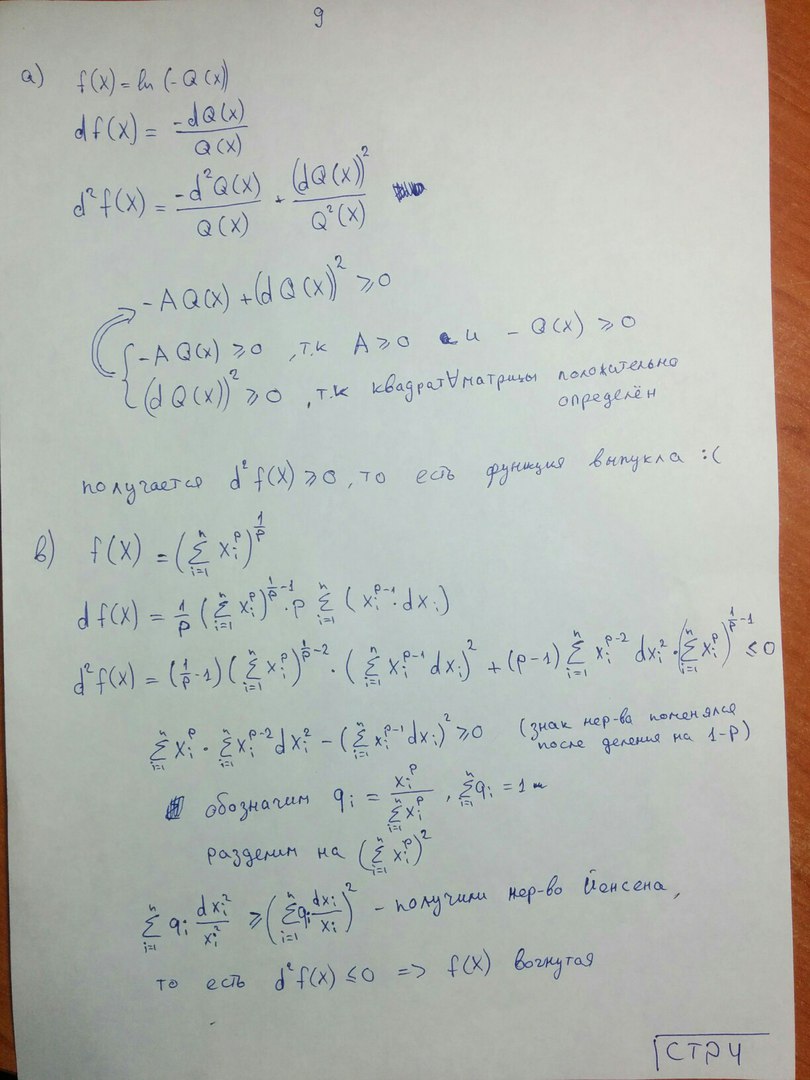 9
а) f(x) = ln (-Q(x))
df(x) = \frac{-dQ(x)}{Q(x)}
d²f(x) = \frac{-d²Q(x)}{Q(x)} + \frac{(dQ(x))²}{Q²(x)}
-AQ(x) + (dQ(x))² ≥ 0
-AQ(x) ≥ 0, т.к A ≥ 0 и -Q(x) ≥ 0
(dQ(x))² ≥ 0, т.к квадрат ∀ матрицы положительно
определён
получается d²f(x) ≥ 0, то есть функция выпукла :(
в) f(x) = (\sum_{i=1}^{n} x_i^p)^{\frac{1}{p}}
df(x) = \frac{1}{p} (\sum_{i=1}^{n} x_i^p)^{\frac{1}{p}-1} · p \sum_{i=1}^{n} (x_i^{p-1} · dx_i)
d²f(x) = (\frac{1}{p}-1) (\sum_{i=1}^{n} x_i^p)^{\frac{1}{p}-2} · (\sum_{i=1}^{n} x_i^{p-1} dx_i)² + (p-1) \sum_{i=1}^{n} x_i^{p-2} dx_i² · (\sum_{i=1}^{n} x_i^p)^{\frac{1}{p}-1} ≤ 0
\sum_{i=1}^{n} x_i^p · \sum_{i=1}^{n} x_i^{p-2} dx_i² - (\sum_{i=1}^{n} x_i^{p-1} dx_i)² ≥ 0 (знак нер-ва поменялся
после деления на 1-p)
обозначим q_i = \frac{x_i^p}{\sum_{i=1}^{n} x_i^p}, \sum_{i=1}^{n} q_i = 1
разделим на (\sum_{i=1}^{n} x_i^p)²
\sum_{i=1}^{n} q_i \frac{dx_i²}{x_i²} ≥ (\sum_{i=1}^{n} q_i \frac{dx_i}{x_i})² - получили нер-во Йенсена,
то есть d²f(x) ≤ 0 => f(x) вогнутая
СТР 4